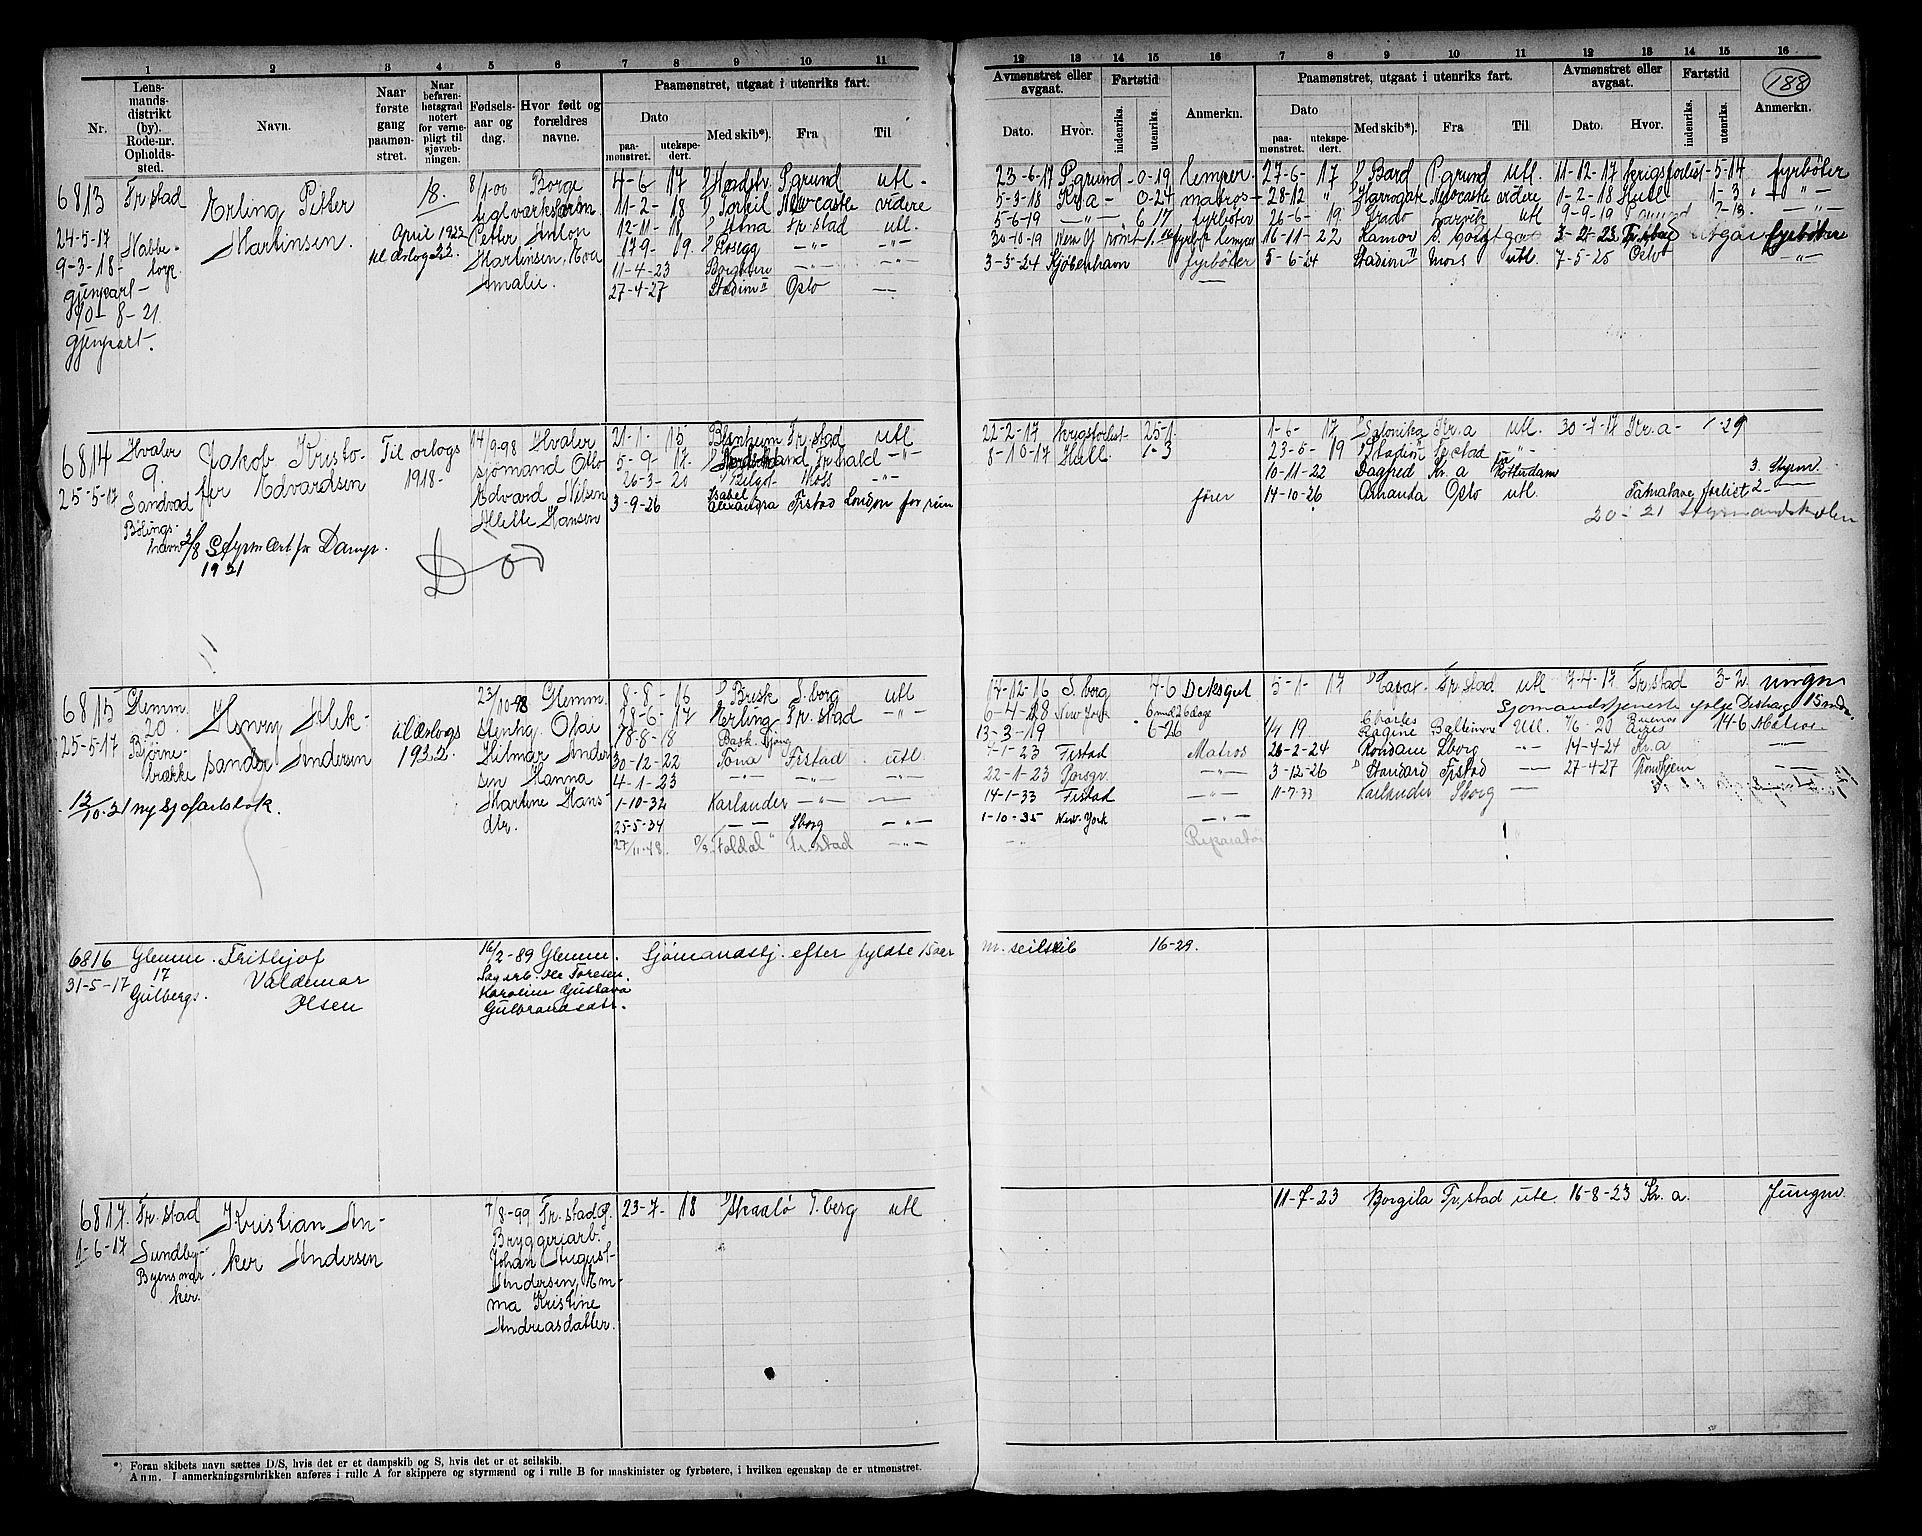 1 2 3 4 5 6 7 8 9 10 11
Nr. Lensmandsdistrikt (by). Rode-nr. Opholdssted. Navn. Naar første gang paamønstret. Naar befarenhetsgrad notert for vernepligt til sjøvæbningen. Fødselsaar og dag. Hvor født og forældres navne. Paamønstret, utgaat i utenriks fart.
Dato Med skib*). Fra Til
paamønstret. utekspedert.
12 13 14 15 16 7 8 9 10 11 12 13 14 15 16
Avmønstret eller avgaat. Fartstid Anmerkn. Paamønstret, utgaat i utenriks fart. Avmønstret eller avgaat. Fartstid Anmerkn.
188
Dato. Hvor. indenriks. utenriks. Dato Med skib*). Fra Til Dato. Hvor. indenriks. utenriks.
paamønstret. utekspedert.
6813 Fr.stad Erling Petter Martinsen. 18. April 1922 8/1-00 Borge
24-5-17
9-3-18-
gjenpart-
8-21
gjenpart.
Petter Anton
Martinsen, Eva
Amalie.
4-6 17 P.grund utl.
11-2-18 Newcastle videre
12-11-18 Fr.stad utl.
17-9-19 Rosegg -"- -"-
11-4-23 -"- -"-
27-4-27 Stadion" Oslo
23-6-17 P.grund 0-19 lemper. 27-6-17 Bard P.grund utl. 11-12-17 krigsforlist 5-14 fyrbøter
5-3-18 Kr.a 0-24 28-12 Harrogate Newcastle videre 1-2-18 Hull 1-3 -"-
5-6-19 -"- 6 17 fyrbøter 26-6-19 Larvik utl 9-9-19 -"-
30-10-19 New Y rømt 16-11-22 Kamor fyrbøter
3-3-24 Kjøbenhavn fyrbøter 5-6-24 Stadion" Moss utl. 7-5-25 Oslo -"-
6814 Hvaler 9. Jakob Kristofer Edvardsen Til orlogs 1918- 14/9-98 Hvaler
25-5-17 Sandvad
sjømand Otto
Edvard Nilsen
Alette Hansen
2/8 Styrm Cert for Damps.
1921
Død
21-1-15 Blenheim Fr.stad utl
5-9-17. Fr.hald -"-
26-3-20 Moss -"-
3-9-26 Isabel Alexandra Frstad London for rum
22-2-17 krigsforlist 25-1. 1-6-17 Salonika Kr.a utl. 30-7-17 Kr.a- 1-29
8-10-17 Hull 1-3 23-5-19 "Stadion" Frstad -"-
10-11-22 Dagfred Kr.a Rotterdam 3. Styrm.
fører 14-10-26 Amanda Oslo utl. Tamatave forlist 2-
20-21 Styrmandskolen
6815 Glemm. 20. Henry Aleksander Andersen til orlogs 1922. 23/10-98 Glemm.
25-5-17 Bjørnebrække
Stenhg. Olai
Hilmar Andersen Hanna
Martine Hansdtr.
12/10-21 ny sjøfartsbok.
8-8-16 Brisk S.borg utl
28-6-17 Herling Fr.stad -"-
18-8-18 Bask.
30-12-22 Tona Frstad utl.
4-1-23 -"- -"-
1-10-32 Karlander -"-
25-5-34 -"- Sborg -"-
27/11-48 Foldal" Fr.stad -"-
17-12-16 S.borg 7-6 Deksgut 5-1-17 Fr.stad utl 7-4-17 Fr.stad 3-2. ungm
6-4-18 New York 6 mnd 26 dage Sjømandstjeneste ifølge Disbog 15 mdr.
13-3-19 6-26 1/4 19 Charles Racine Baltimore Utl. 7/6-20 Buenos Aires 14-6 Matros
4-1-23 Frstad Matros 26-2-24 Rondane Sborg -"- 14-4-24 Kr.a -"-
22-1-23 Porsgr. -"- 3-12-26 Standard Frstad 27-4-27 Trondhjem -"-
14-1-33 Frstad -"- 11-7-33 Karlander Sborg
1-10-35 New York -"-
Reparatør
6816 Glemm. 17 Gulbergs. Fritlhjof Valdemar Olsen 16/2-89 Glemm.
31-5-17
Sagarb. Ole Toresen.
Karoline Gustava
Gulbrandsdtr.
Sjømandstj. efter fyldte 15 aar m. seilskib 16-29.
6817. Fr.stad Kristian Anker Andersen 7/8-99 Fr.stad g.
1-6-17 Sundby-
Byens marker.
Bryggeriarb.
Johan August
Andersen, Emma Kristine
Andreasdatter.
23-7-18 Skaalø T.berg utl
11-7-23 Borgila Fr.stad utl. 16-8-23 Kr.a. Jungm.
*) Foran skibets navn sættes D/S, hvis det er et dampskib og S, hvis det er et seilskib.
Anm. I anmerkningsrubrikken anføres i rulle A for skippere og styrmænd og i rulle B for maskinister og fyrbøtere, i hvilken egenskap de er utmønstret.